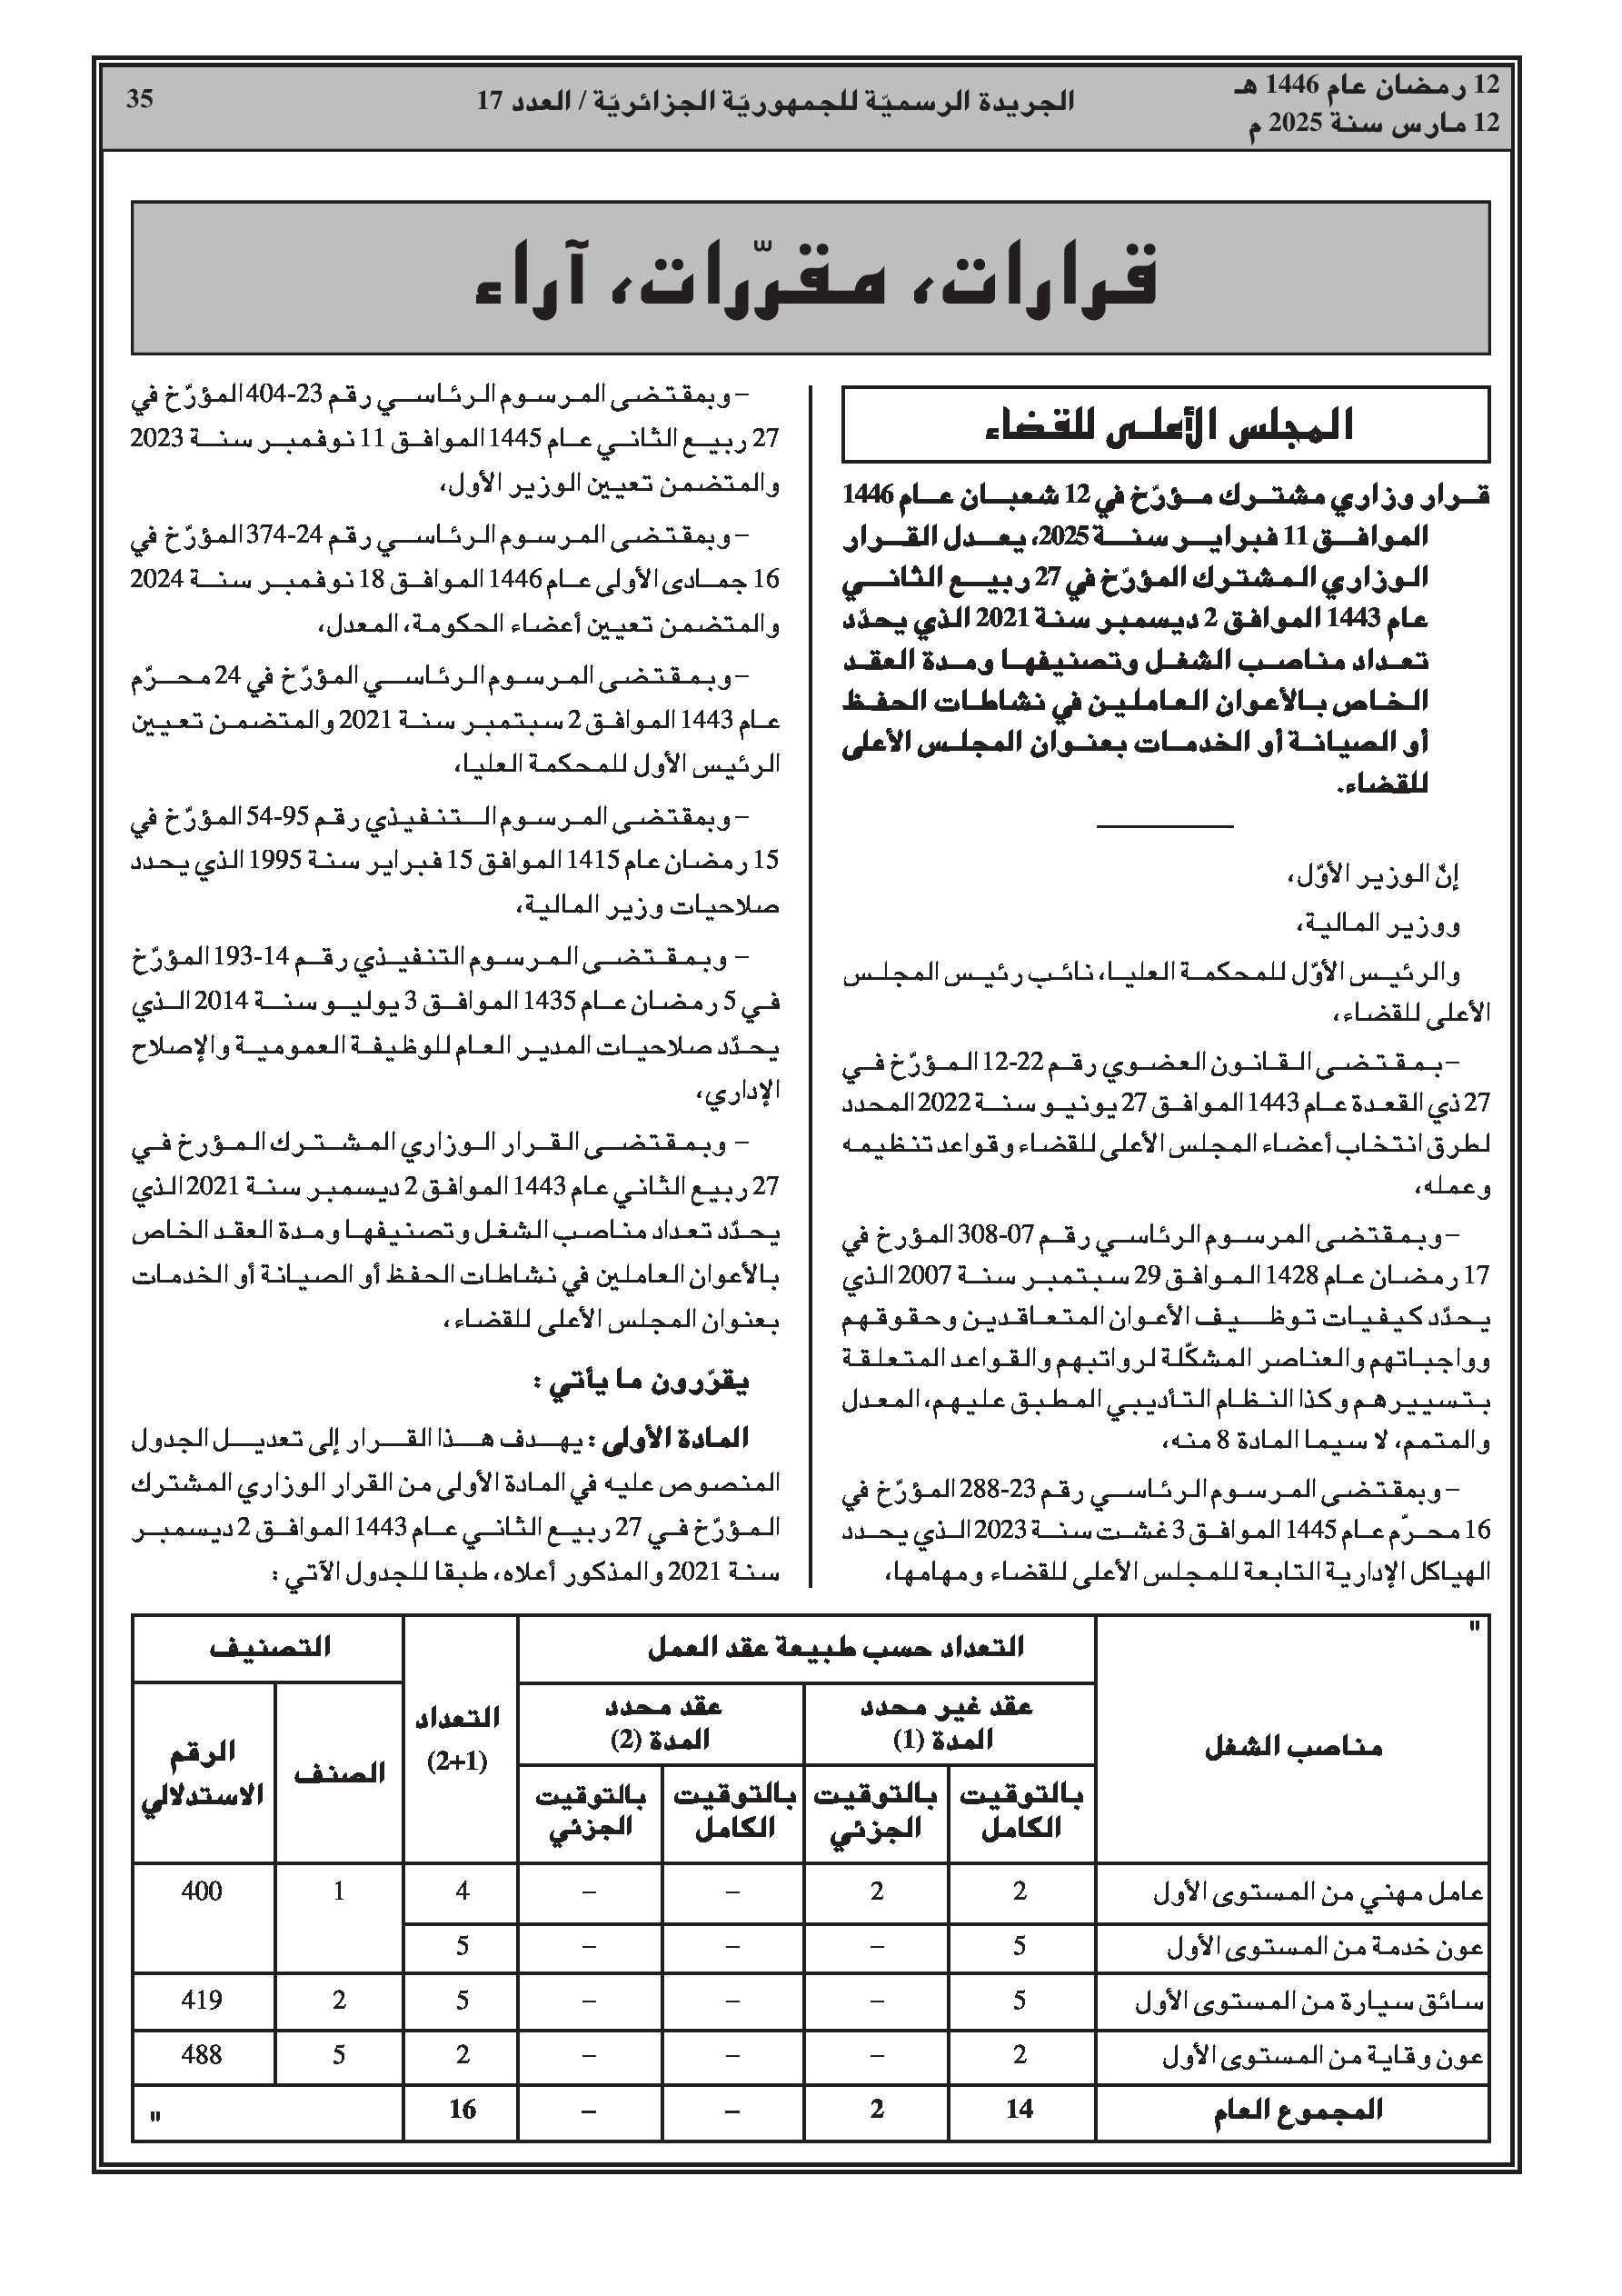 12 رمضان عام 1446 هـ
12 مارس سنة 2025 م
الجريدة الرسميّة للجمهوريّة الجزائريّة / العدد 17
35
قرارات، مقرّرات، آراء
المجلس الأعلى للقضاء
قرار وزاري مشترك مؤرّخ في 12 شعبان عام 1446
الموافق 11 فبراير سنة 2025، يعدل القرار
الوزاري المشترك المؤرّخ في 27 ربيع الثاني
عام 1443 الموافق 2 ديسمبر سنة 2021 الذي يحدّد
تعداد مناصب الشغل وتصنيفها ومدة العقد
الخاص بالأعوان العاملين في نشاطات الحفظ
أو الصيانة أو الخدمات بعنوان المجلس الأعلى
للقضاء.
إنّ الوزير الأوّل،
ووزير المالية،
والرئيس الأوّل للمحكمة العليا، نائب رئيس المجلس
الأعلى للقضاء،
– بمقتضى القانون العضوي رقم 22-12 المؤرّخ في
27 ذي القعدة عام 1443 الموافق 27 يونيو سنة 2022 المحدد
لطرق انتخاب أعضاء المجلس الأعلى للقضاء وقواعد تنظيمه
وعمله،
– وبمقتضى المرسوم الرئاسي رقم 07-308 المؤرخ في
17 رمضان عام 1428 الموافق 29 سبتمبر سنة 2007 الذي
يحدّد كيفيات توظيف الأعوان المتعاقدين وحقوقهم
وواجباتهم والعناصر المشكّلة لرواتبهم والقواعد المتعلقة
بتسييرهم وكذا النظام التأديبي المطبق عليهم، المعدل
والمتمم، لا سيما المادة 8 منه،
– وبمقتضى المرسوم الرئاسي رقم 23-288 المؤرّخ في
16 محرّم عام 1445 الموافق 3 غشت سنة 2023 الذي يحدد
الهياكل الإدارية التابعة للمجلس الأعلى للقضاء ومهامها،
– وبمقتضى المرسوم الرئاسي رقم 23-404 المؤرّخ في
27 ربيع الثاني عام 1445 الموافق 11 نوفمبر سنة 2023
والمتضمن تعيين الوزير الأول،
– وبمقتضى المرسوم الرئاسي رقم 24-374 المؤرّخ في
16 جمادى الأولى عام 1446 الموافق 18 نوفمبر سنة 2024
والمتضمن تعيين أعضاء الحكومة، المعدل،
– وبمقتضى المرسوم الرئاسي المؤرّخ في 24 محرّم
عام 1443 الموافق 2 سبتمبر سنة 2021 والمتضمن تعيين
الرئيس الأول للمحكمة العليا،
– وبمقتضى المرسوم التنفيذي رقم 95-54 المؤرّخ في
15 رمضان عام 1415 الموافق 15 فبراير سنة 1995 الذي يحدد
صلاحيات وزير المالية،
– وبمقتضى المرسوم التنفيذي رقم 14-193 المؤرّخ
في 5 رمضان عام 1435 الموافق 3 يوليو سنة 2014 الذي
يحدّد صلاحيات المدير العام للوظيفة العمومية والإصلاح
الإداري،
– وبمقتضى القرار الوزاري المشترك المؤرخ في
27 ربيع الثاني عام 1443 الموافق 2 ديسمبر سنة 2021 الذي
يحدّد تعداد مناصب الشغل وتصنيفها ومدة العقد الخاص
بالأعوان العاملين في نشاطات الحفظ أو الصيانة أو الخدمات
بعنوان المجلس الأعلى للقضاء،
يقرّرون ما يأتي :
المادة الأولى : يهدف هذا القرار إلى تعديل الجدول
المنصوص عليه في المادة الأولى من القرار الوزاري المشترك
المؤرّخ في 27 ربيع الثاني عام 1443 الموافق 2 ديسمبر
سنة 2021 والمذكور أعلاه، طبقا للجدول الآتي :
"
مناصب الشغل
التعداد حسب طبيعة عقد العمل
التعداد
(2+1)
التصنيف
عقد غير محدد
المدة (1)
عقد محدد
المدة (2)
الصنف
الرقم
الاستدلالي
بالتوقيت
الكامل
بالتوقيت
الجزئي
بالتوقيت
الكامل
بالتوقيت
الجزئي
عامل مهني من المستوى الأول 2 2 – – 4 1 400
عون خدمة من المستوى الأول 5 – – – 5
سائق سيارة من المستوى الأول 5 – – – 5 2 419
عون وقاية من المستوى الأول 2 – – – 2 5 488
المجموع العام 14 2 – – 16 "